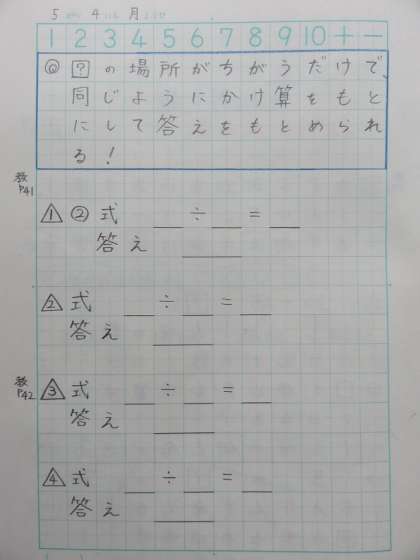 5 4 月
1 2 3 4 5 6 7 8 9 10 十 一
◎ ? の場所がちがうだけで、
同じようにかけ算をもと
にして答えをもとめられ
る!
教P41
△1 ② 式 ÷ =
答え
△2 式 ÷ =
答え
教P42
△3 式 ÷ =
答え
△4 式 ÷ =
答え